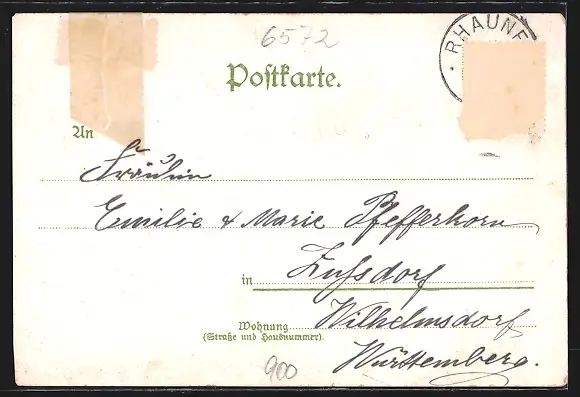 6572
RHAUNE
Postkarte.
An
Fräulein
Emilie & Marie Pfefferkorn
in Zußdorf
Wilhelmsdorf
Wohnung
(Straße und Hausnummer).
Württemberg.
900